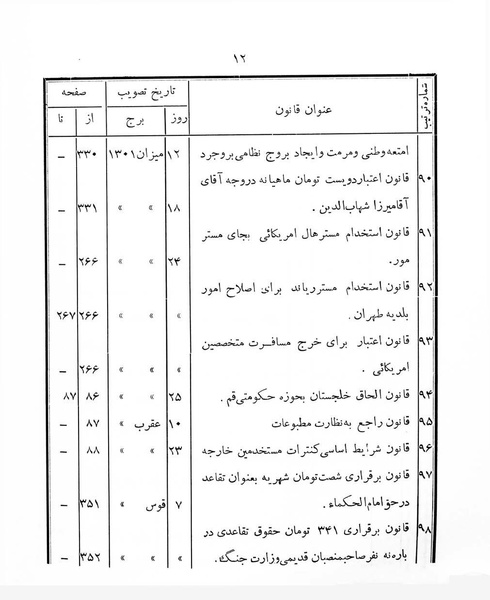 ۱۲
شماره ترتیب عنوان قانون تاریخ تصویب صفحه
روز برج از تا
امتعه وطنی و مرمت و ایجاد بروج نظامی بروجرد ۱۲ میزان ۱۳۰۱ ۳۳۰ –
۹۰ قانون اعتبار دویست تومان ماهیانه دروجه آقای
آقامیرزا شهاب‌الدین . ۱۸ » » ۳۳۱ –
۹۱ قانون استخدام مسترهال امریکائی بجای مستر
مور. ۲۴ » » ۲۶۶ –
۹۲ قانون استخدام مستر ریاند برای اصلاح امور
بلدیه طهران . » » » ۲۶۶ ۲۶۷
۹۳ قانون اعتبار برای خرج مسافرت متخصصین
امریکائی . » » » ۲۶۶ –
۹۴ قانون الحاق خلجستان بحوزه حکومتی قم . ۲۵ » » ۸۶ ۸۷
۹۵ قانون راجع به نظارت مطبوعات ۱۰ عقرب » ۸۷ –
۹۶ قانون شرایط اساسی کنترات مستخدمین خارجه ۲۳ » » ۸۸ –
۹۷ قانون برقراری شصت تومان شهریه بعنوان تقاعد
در حق امام الحکماء . ۷ قوس » ۳۵۱ –
۹۸ قانون برقراری ۳۴۱ تومان حقوق تقاعدی در
باره نه نفر صاحبمنصبان قدیمی وزارت جنگ . » » » ۳۵۲ –